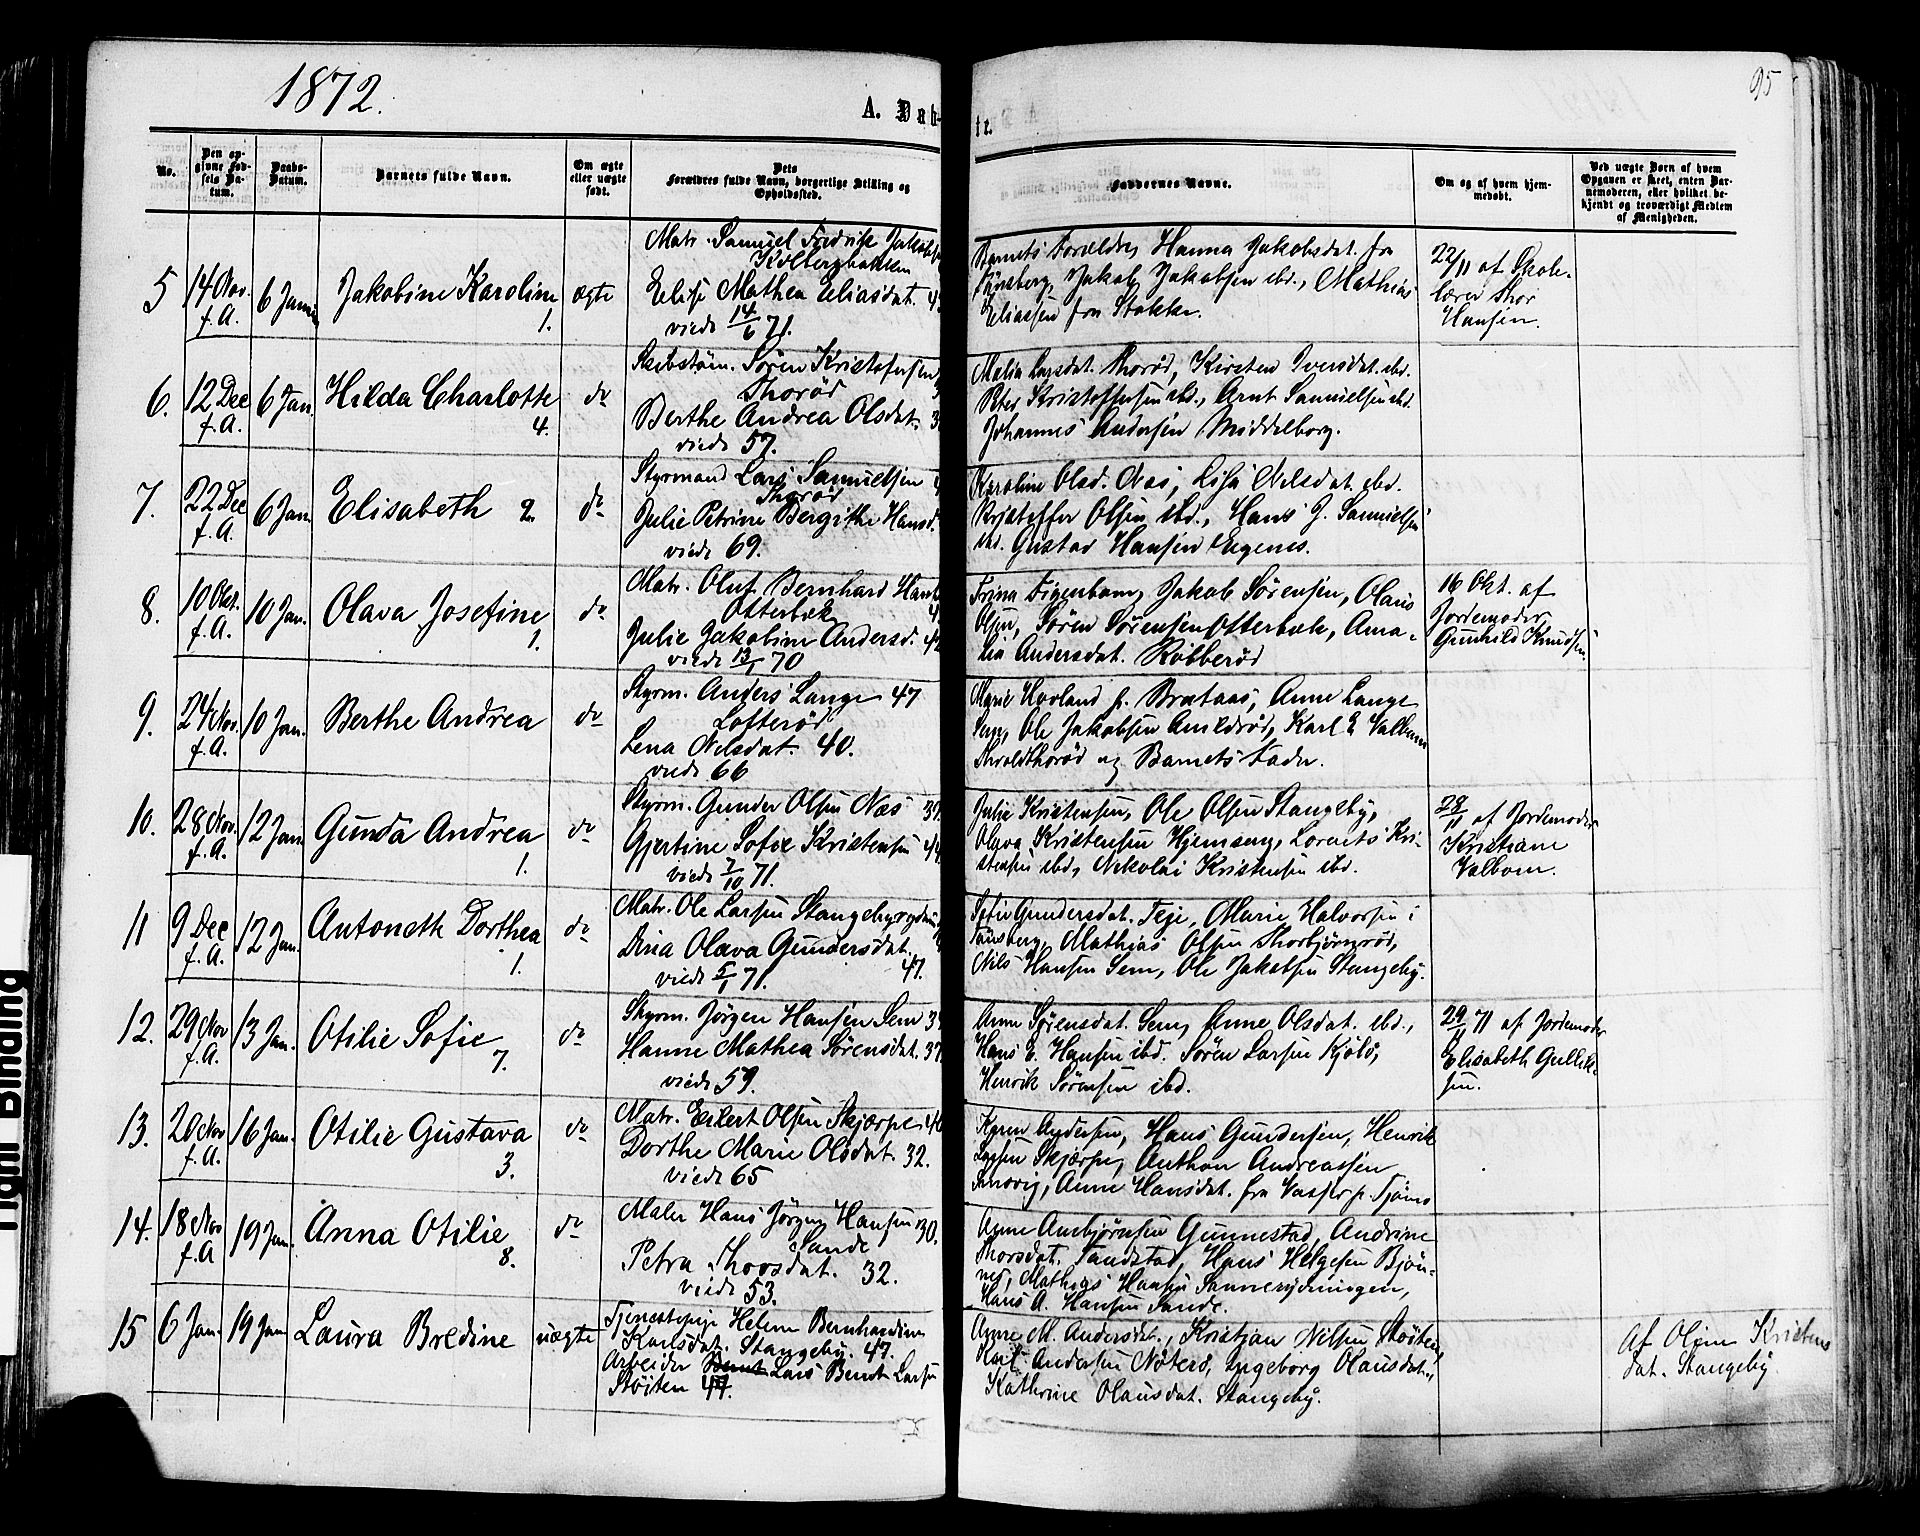 1872.
95
A. Dab-
te.
No.
Den op-
givne Fød-
sels Da-
tum.
Daabs-
Datum.
Barnets fulde Navn.
Om ægte
eller uægte
født.
Dets
Forældres fulde Navn, borgerlige Stilling og
Opholdssted.
Faddernes Navne.
Om og af hvem hjem-
medøbt.
Ved uægte Børn af hvem
Opgaven er skeet, enten Bar-
nemoderen, eller hvilket be-
kjendt og troværdigt Medlem
af Menigheden.
5
14 Nov.
f. A.
6 Januar
Jakobine Karoline
1.
ægte
Matr. Samuel Fredrik Jakobsen
Kolberghakken
Elise Mathea Eliasdat.
viede 14/6 71.
Barnets Forældre, Hanna Jakobsdat. fra
Tønsberg, Jakob Jakobsen ibd., Mathias
Eliassen fra Stokke.
22/11 af Skole-
lærer Thor
Hansen.
6.
12 Dec
f. A.
6 Jan.
Hilda Charlotte
4.
do
Skibstøm. Søren Kristofersen
Thorød
Berthe Andrea Olsdat.
viede 57.
Malia Larsdat. Thorød, Kirsten Iversdat. ibd.
Peter Kristoffersen ibd., Arnt Samuelsen ibd.
Johannes Andersen Middelborg.
7.
22 Dec
f. A.
6 Jan.
Elisabeth 2.
do
Styrmand Lars Samuelsen
Thorød
Julie Petrine Bergitte Hansd.
viede 69.
Karoline Olsd. Næs, Lisa Nilsdat. ibd.
Kristoffer Olsen ibd., Hans J. Samuelsen
ibd. Gustav Hansen Eegenes.
8.
10 Okt.
f. A.
10 Jan.
Olava Josefine
1.
do
Matr. Oluf Bernhard Hans
Otterbek
Julie Jakobine Andersd.
viede 13/1 70
Trina Figenbaum, Jakob Sørensen, Olaus
Olsen, Søren Sørensen Otterbæk, Ama-
lia Andersdat. Robberød
16 Okt. af
Jordemoder
Gunhild Knudsen
9.
24 Nov.
f. A.
10 Jan.
Berthe Andrea
do
Styrm. Anders Lange 47
Lofterød
Lena Nilsdat. 40.
viede 66
Marie Havland p. Brataas, Anne Lange
Sem, Ole Jakobsen Amildrød, Karl E Valbom
Thoroldthorød og Barnets Fader.
10.
28 Nov.
f. A.
12 Jan.
Gunda Andrea
1.
do
Styrm. Gunder Olsen Næs 39.
Gjertine Sofie Kristensen 44.
viede 7/10 71.
Julie Kristensen, Ole Olsen Stangeby,
Olava Kristensen Hjemseng, Lorents Kri-
stensen ibd, Nikolai Kristensen ibd.
28/11 af Jordemoder
Kristiane
Valbom.
11
9 Dec
f. A.
12 Jan.
Antoneth Dorthea
1.
do
Matr. Ole Larsen Stangebyrydning
Dina Olava Gundersdat.
47.
viede 5/1 71.
Sofie Gundersdat. Teje, Marie Halvorsen i
Tønsberg, Mathias Olsen Thorbjørnrød,
Nils Hansen Sem, Ole Jakobsen Stangeby.
12.
29 Nov
f. A.
13 Jan.
Otilie Sofie
7.
do
Styrm. Jørgen Hansen Sem
Hanne Mathea Sørensdat. 37.
viede 59.
Anne Sørensdat. Sem, Anne Olsdat. ibd.,
Hans E. Hansen ibd. Søren Larsen Kjølø,
Henrik Sørensen ibd.
29/11 71 af Jordemoder
Elisabeth Gullik-
sen.
13.
20 Nov
f. A.
16 Jan.
Otilie Gustava
3.
do
Matr. Eilert Olsen Skjærpe 40
Dorthe Marie Olsdat. 32.
viede 65
Karen Andersen, Hans Gundersen, Henrik
Larsen Skjærpe, Anthon Andreassen
Snovig, Anne Hansdat. fra Vasser p. Tjømø
14.
18 Nov
f. A
19 Jan.
Anna Otilie
8.
do
Maler Hans Jørgen Hansen 30.
Sande
Petra Thorsdat. 32.
viede 53.
Anne Ambjørnsen Gunnestad, Andrine
Thorsdat. Tandstad, Hans Helgesen Bjøn-
nes, Mathias Hansen Sannerydningen,
Hans A. Hansen Sande.
15
6 Jan.
19 Jan
Laura Bredine
uægte
Tjenestepige Helene Bernhardine
Karlsdat. Stangeby. 47.
Arbeider Bernt Lars Bernt Larsen
Støiten 47.
Anne M. Andersdat., Kristian Nilsen Støiten,
Karl Andersen Nøterø, Ingeborg Olausdat.,
Kathrine Olausdat. Stangeby.
Af Oline Kristens
dat. Stangeby